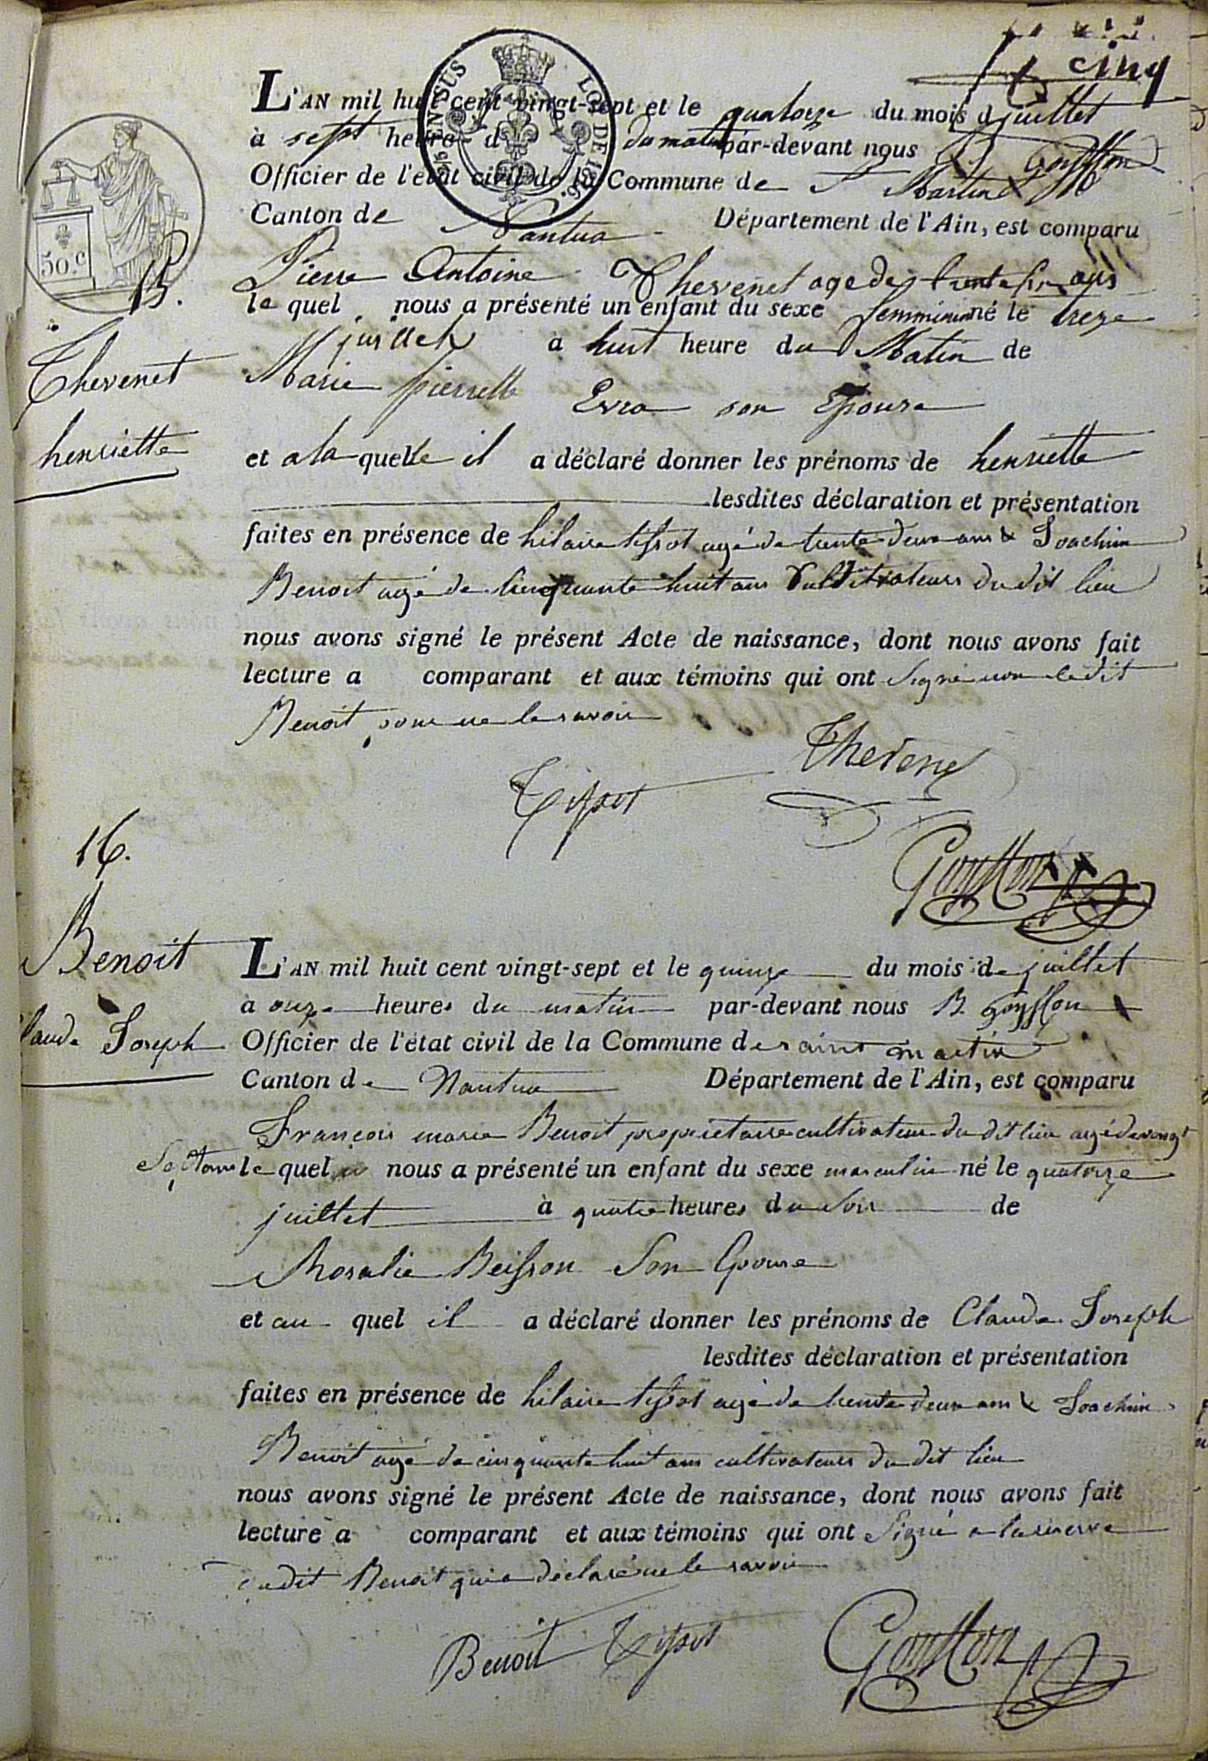 cinq
L'AN mil huit cent vingt-sept et le quatorze du mois d juillet
à sept heure d du matin par-devant nous B. Gouffon
Officier de l'état civil de la Commune de St Martin
Canton de Nantua Département de l'Ain, est comparu
Pierre Antoine Thevenet age de trente six ans
le quel nous a présenté un enfant du sexe femminin né le treze
juillet à huit heure du Matin de
Marie pierrette Evra son Epouse
et a la quelle il a déclaré donner les prénoms de henriette
lesdites déclaration et présentation
faites en présence de hilaire tissot agé de trente deux ans & Joachim
Benoit agé de cinquante huit ans Cultivateurs du dit lieu
nous avons signé le présent Acte de naissance, dont nous avons fait
lecture a comparant et aux témoins qui ont signé non le dit
Benoit pour ne le savoir
Thevene
Tissot
Gouffon
15.
Thevenet
henriette
50.c
TIMBRE
LOI DE 1816.
16.
Benoit
laude Joseph
L'AN mil huit cent vingt-sept et le quinze du mois de juillet
à onze heures du matin par-devant nous B. Gouffon
Officier de l'état civil de la Commune de saint martin
Canton de Nantua Département de l'Ain, est comparu
François marie Benoit proprietaire cultivateur du dit lieu agé de vingt
Sept ans le quel nous a présenté un enfant du sexe masculin né le quatorze
juillet à quatre heures du soir de
Rosalie Beisson Son Epouse
et au quel il a déclaré donner les prénoms de Claude Joseph
lesdites déclaration et présentation
faites en présence de hilaire tissot agé de trente deux ans & Joachim
Benoit agé de cinquante huit ans cultivateurs du dit lieu
nous avons signé le présent Acte de naissance, dont nous avons fait
lecture a comparant et aux témoins qui ont signé a la reserve
du dit Benoit qui a déclaré ne le savoir
Benoit Tissot Gouffon